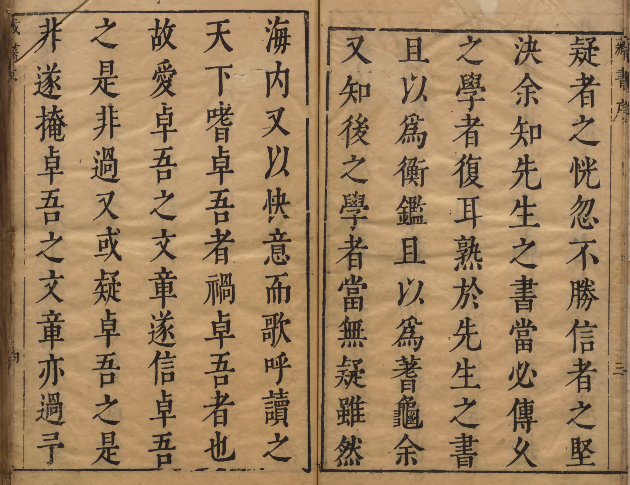 疑者之恍忽不勝信者之堅
決余知先生之書當必傳久
之學者復耳熟於先生之書
且以爲衡鑑且以爲蓍龜余
又知後之學者當無疑雖然
海内又以快意而歌呼讀之
天下嗜卓吾者禍卓吾者也
故愛卓吾之文章遂信卓吾
之是非過又或疑卓吾之是
非遂掩卓吾之文章亦過予